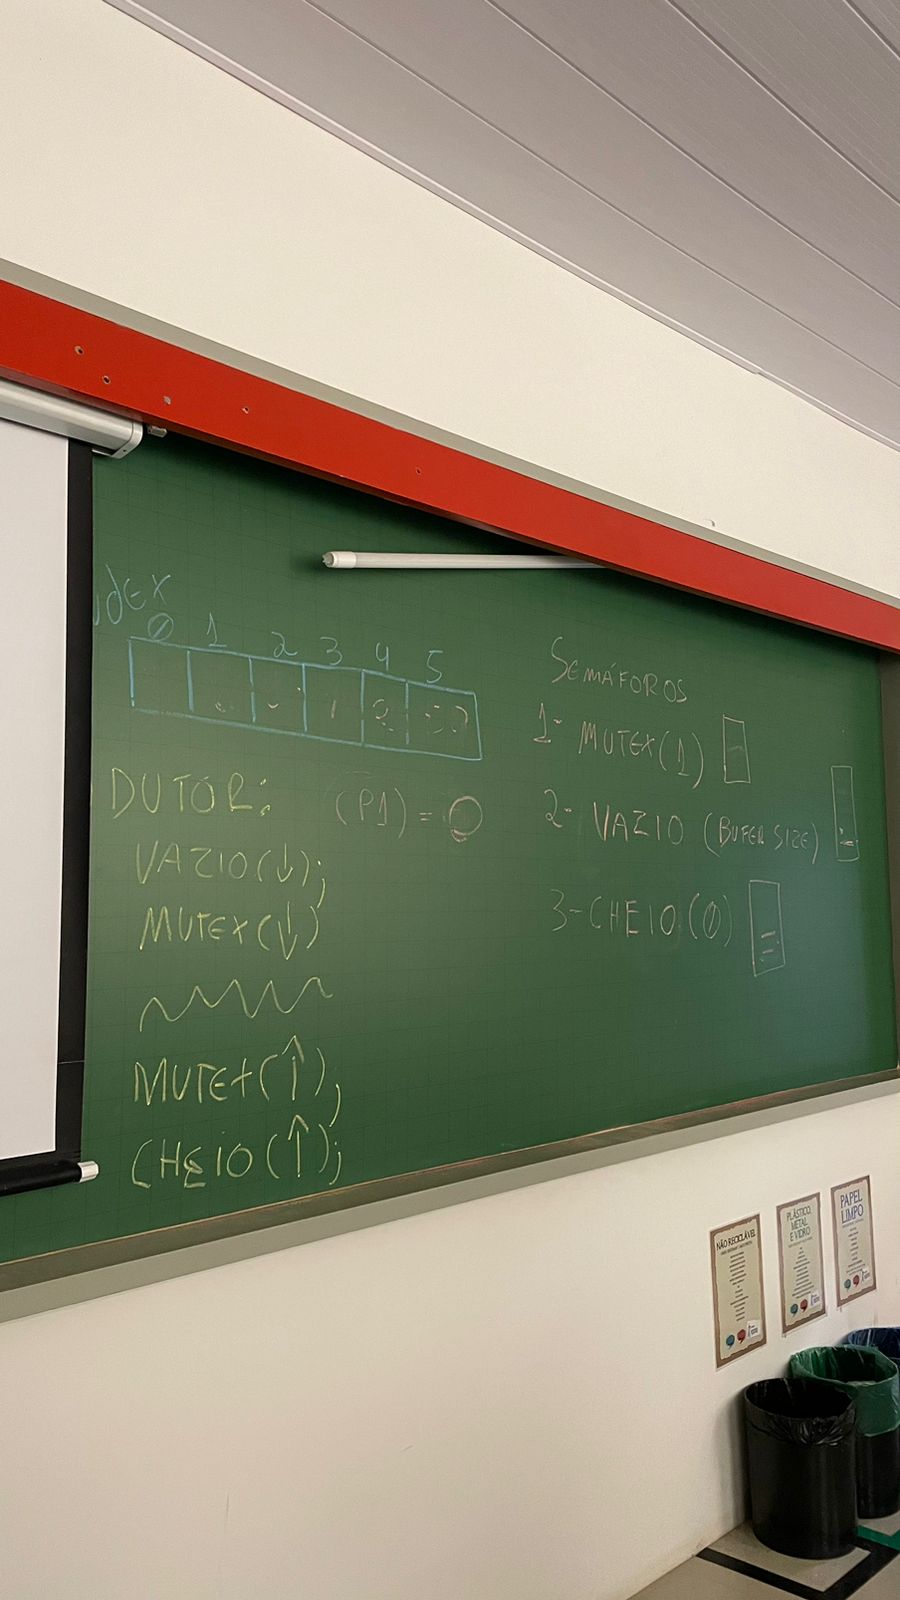 DEX
0 1 2 3 4 5
DUTOR: (P1) = O
VAZIO(↓);
MUTEX(↓)
MUTEX(↑);
CHEIO(↑);
SEMÁFOROS
1- MUTEX(1)
2- VAZIO (BUFER SIZE)
3- CHEIO(0)
NÃO RECICLÁVEL
PLÁSTICO,
METAL
E VIDRO
PAPEL
LIMPO